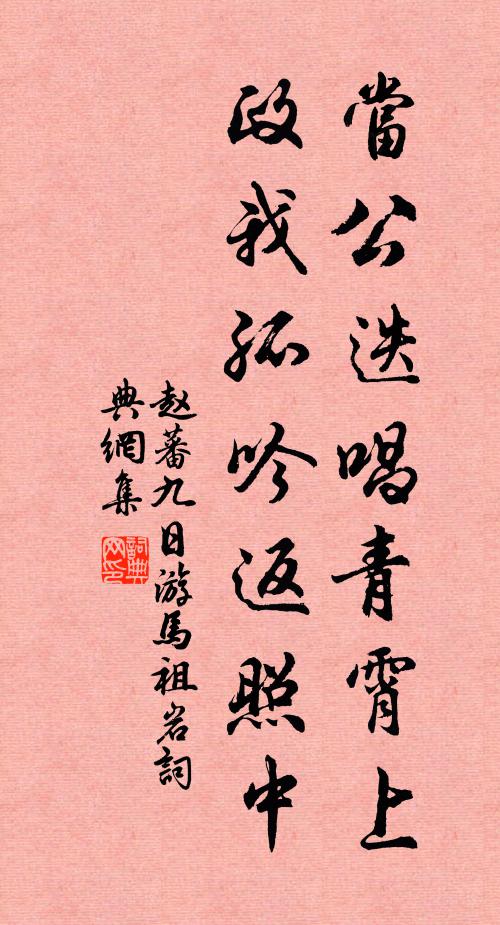 當公迭唱青霄上
政我孤吟返照中
赵蕃九日游馬祖岩詞
典網集
詞典網印